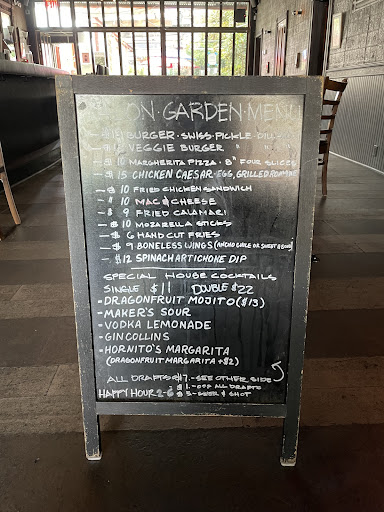 ON GARDEN MENU
BURGER · SWISS · PICKLE
VEGGIE BURGER " " "
- $ 10 MARGHERITA PIZZA · 8" FOUR SLICES
- $ 15 CHICKEN CAESAR · EGG, GRILLED ROMAINE
- $ 10 FRIED CHICKEN SANDWICH
- $ 10 MAC & CHEESE
- $ 9 FRIED CALAMARI
- $ 10 MOZARELLA STICKS
- $ 6 HAND CUT FRIES
- $ 9 BONELESS WINGS (ANCHO CHILE OR SWEET &
- $12 SPINACH ARTICHOKE DIP
SPECIAL HOUSE COCKTAILS
SINGLE $11 DOUBLE $22
- DRAGONFRUIT MOJITO ($13)
- MAKER'S SOUR
- VODKA LEMONADE
- GIN COLLINS
- HORNITO'S MARGARITA
(DRAGONFRUIT MARGARITA +$2)
ALL DRAFTS $7 - SEE OTHER SIDE
$1 - OFF ALL DRAFTS
HAPPY HOUR 2-6 $ 5 - BEER & SHOT